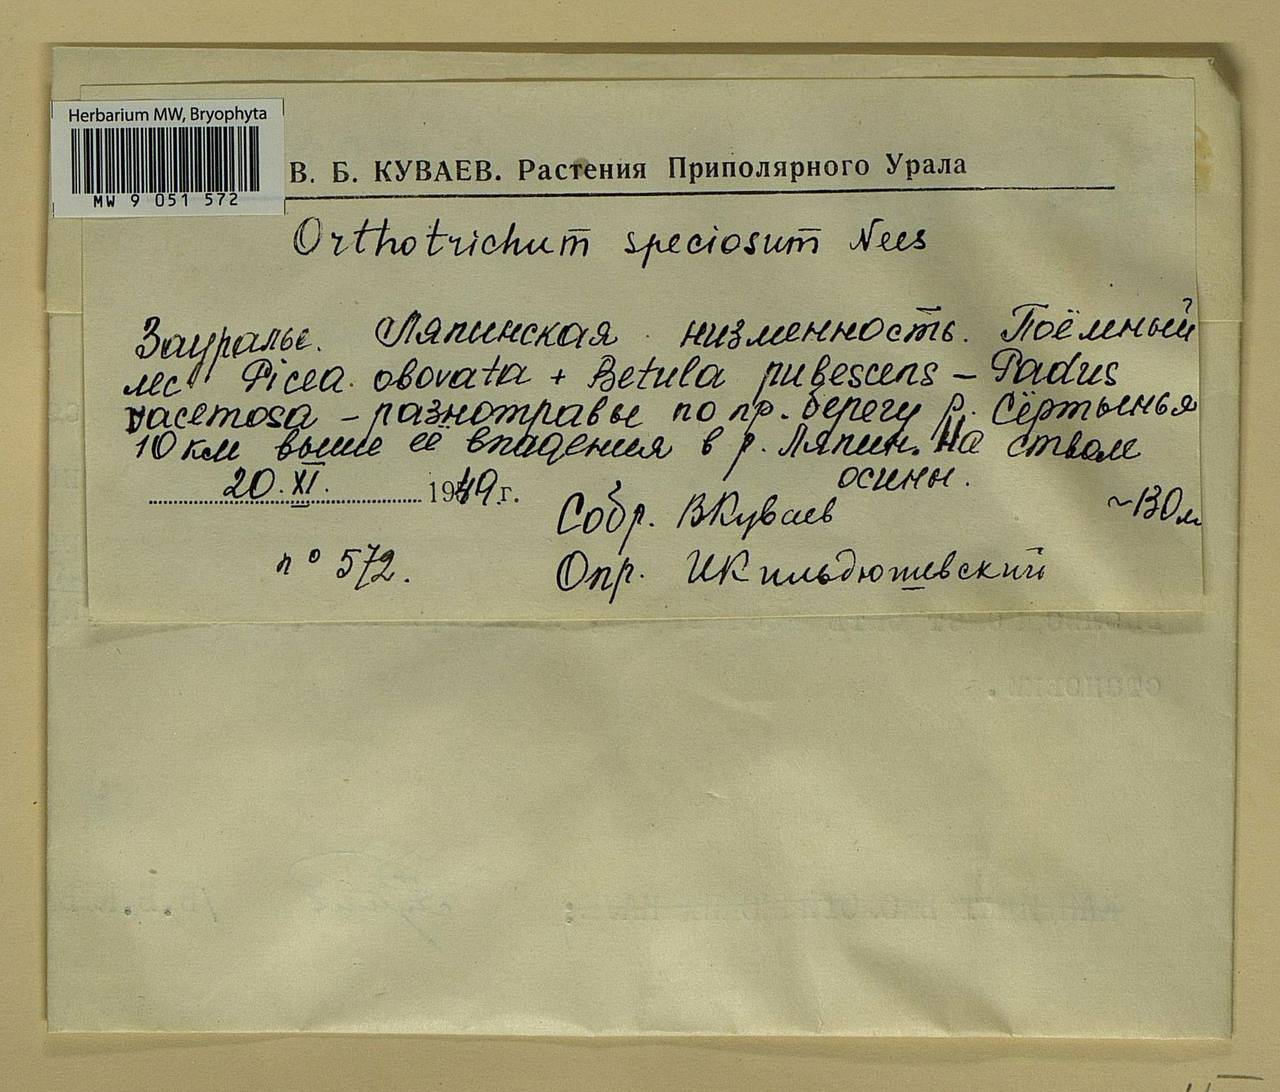 Herbarium MW, Bryophyta
MW 9 051 572
В. Б. КУВАЕВ. Растения Приполярного Урала
Orthotrichum speciosum Nees
Зауралье. Ляпинская низменность. Поёмный
лес Picea obovata + Betula pubescens – Padus
racemosa – разнотравье по пр. берегу р. Сёртынья
10 км выше её впадения в р. Ляпин. На стволе
осины.
20.XI. 1949 г.
~130 м
Собр. ВКуваев
n° 572.
Опр. ИКильдюшевский